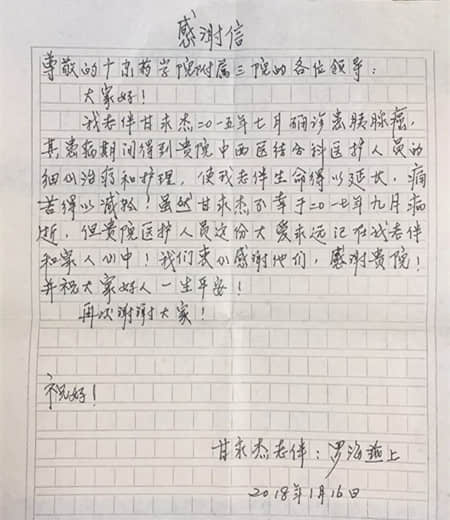 感谢信
尊敬的广东药学院附属三院的各位领导：
大家好！
我老伴甘求杰二〇一五年七月确诊患胰腺癌，
其患病期间得到贵院中西医结合科医护人员的
细心治疗和护理，使我老伴生命得以延长，痛
苦得以减轻！虽然甘求杰不幸于二〇一七年九月病
逝，但贵院医护人员这份大爱永远记在我老伴
和家人心中！我们衷心感谢他们，感谢贵院！
并祝大家好人一生平安！
再次谢谢大家！
祝好！
甘求杰老伴：罗海 上
2018年1月16日